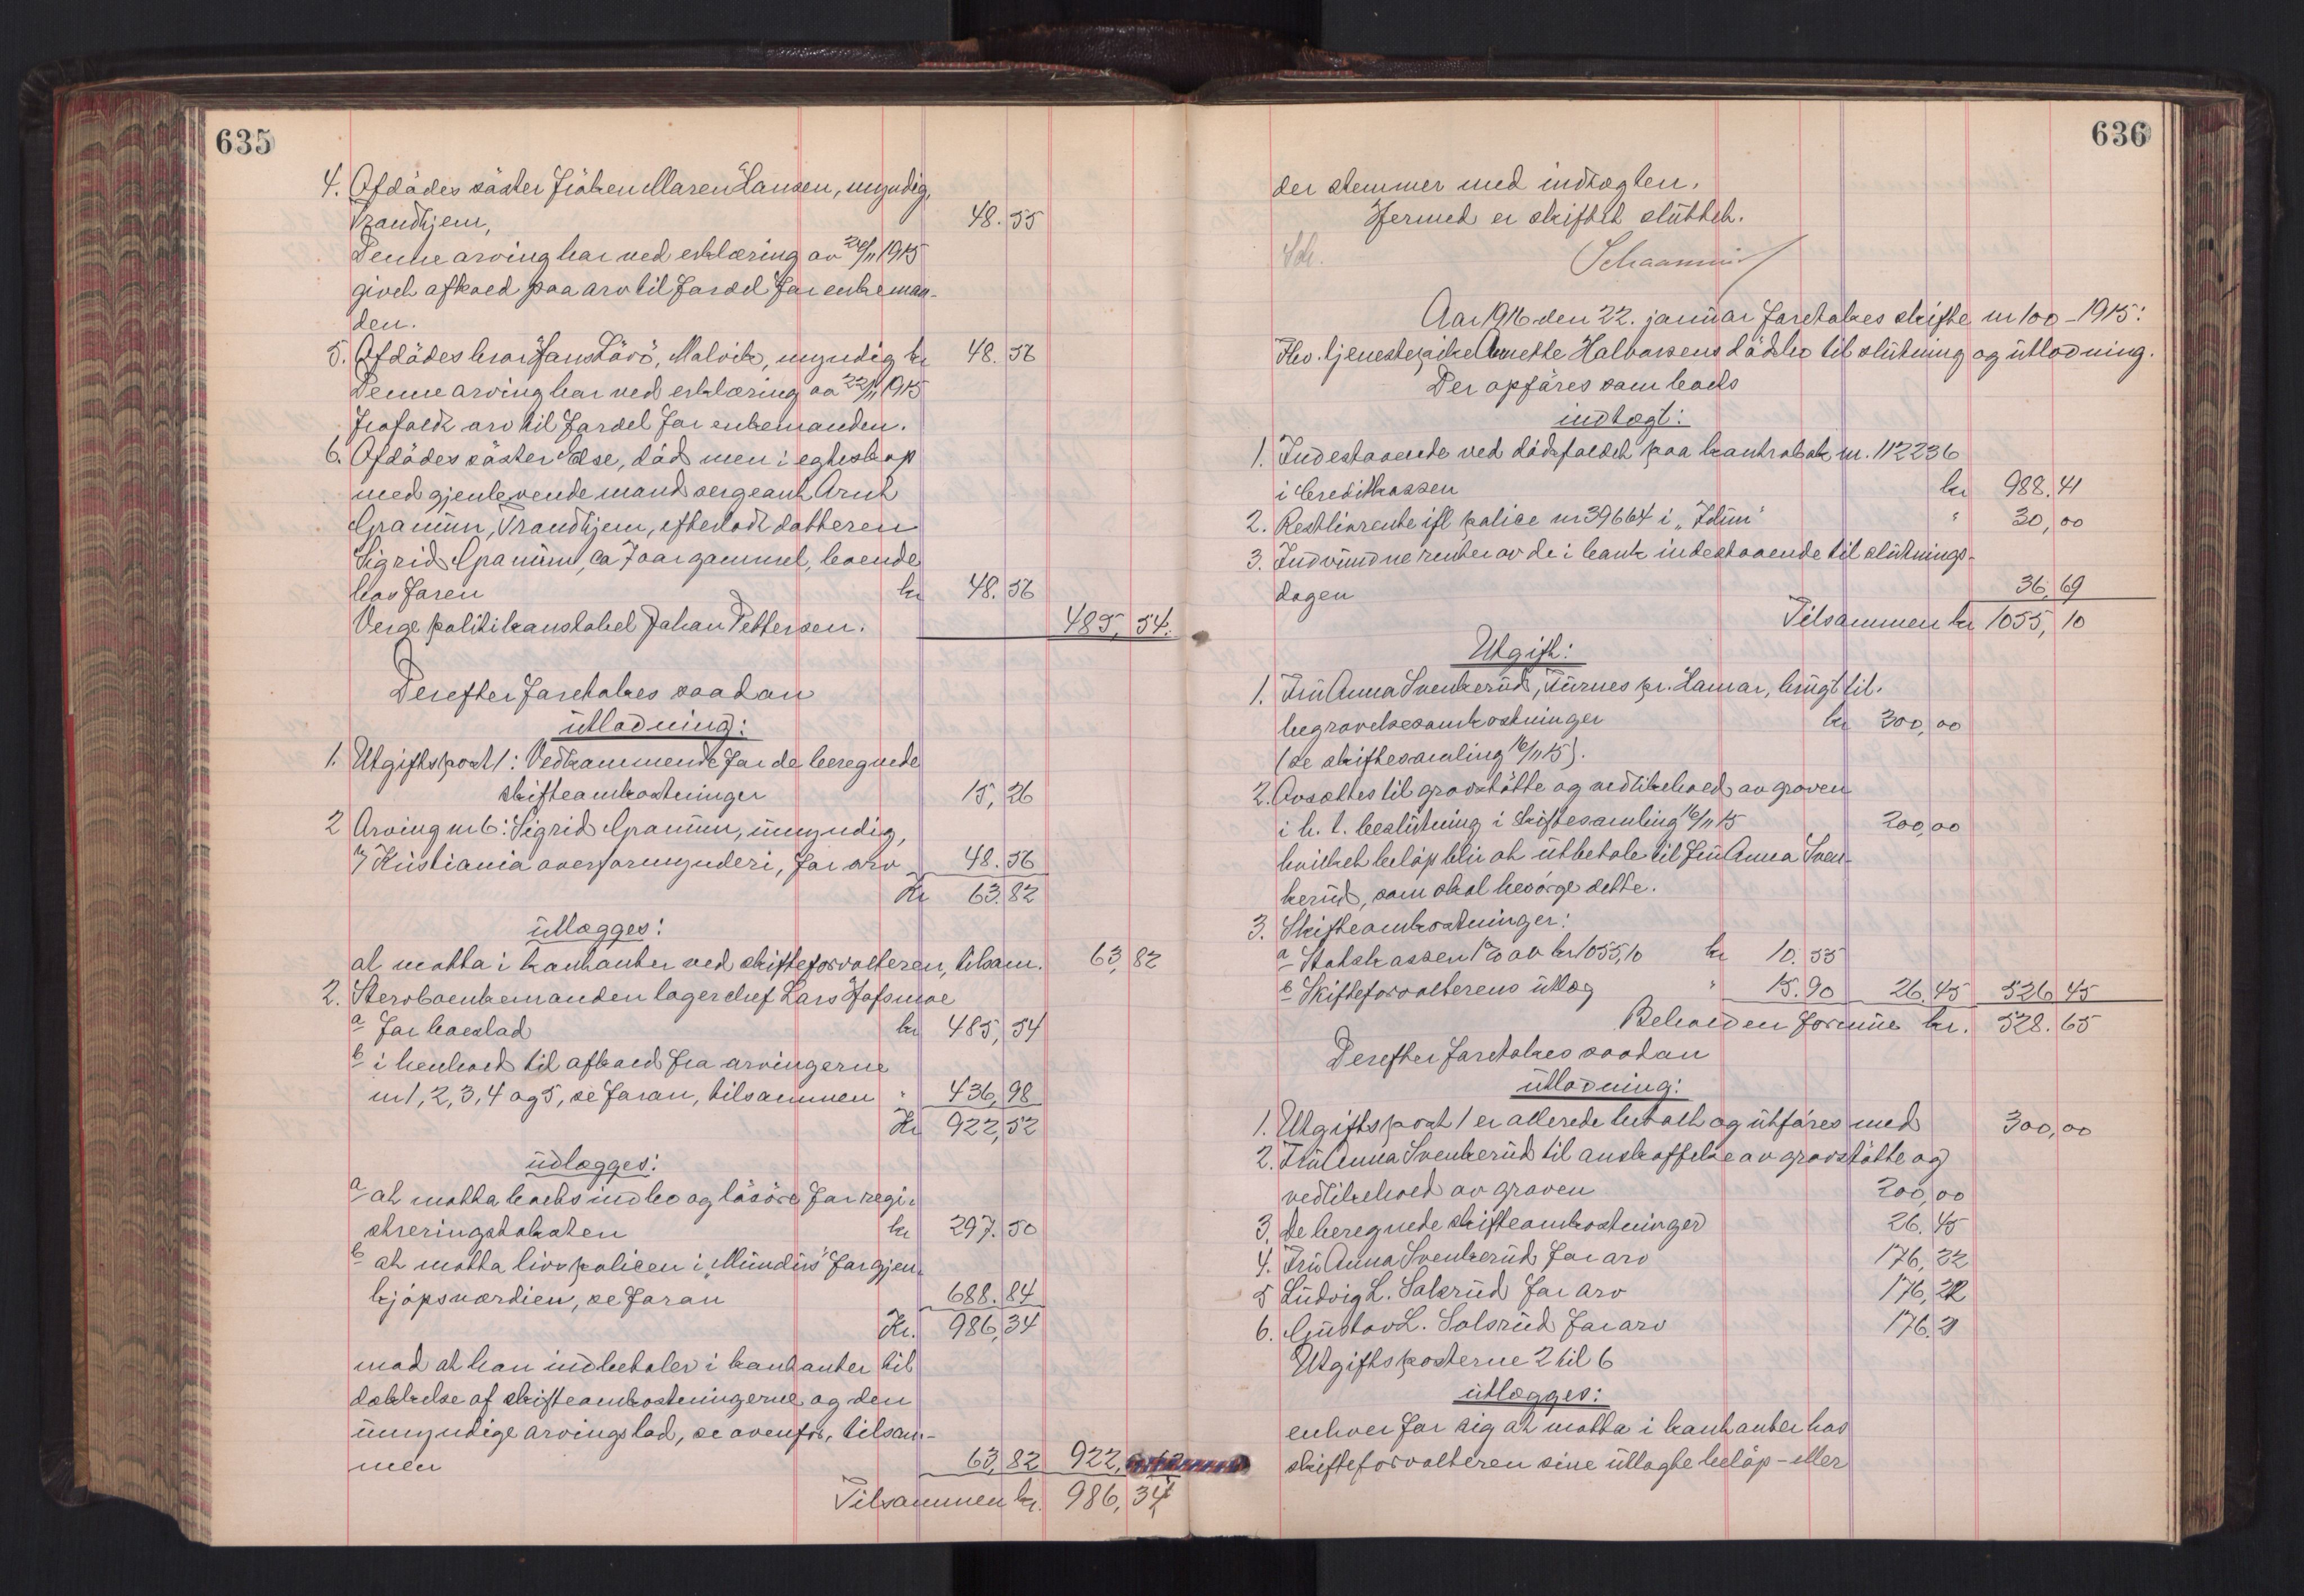 635
4. Afdødes søster Frøken Maren Hansen, myndig,
Trondhjem, 48.55
Denne arving har ved erklæring av 24/11 1915
givet afkald paa arv til fordel for enkeman-
den.
5. Afdødes bror Hans Lövö, Malvik, myndig kr 48.56
Denne arving har ved erklæring av 22/11 1915
frafaldt arv til fordel for enkemanden.
6. Afdødes søster Else, død men i egteskap
med gjenlevende mand sergeant Arnt
Granum, Trondhjem, efterlodt datteren
Sigrid Granum, ca 7 aar gammel, boende
hos faren kr 48.56
Verge politikonstabel Johan Pettersen. 485,54.
Derefter foretokes saadan
utlodning:
1. Utgiftspost 1: Vedkommende for de beregnede
skifteomkostninger 15,26
2 Arving nr 6: Sigrid Granum, umyndig,
Kristiania overformynderi, for arv 48.56
Kr 63.82
utlægges:
at motta i kontanter ved skifteforvalteren, tilsam. 63,82
2. Stervboenkemanden lagerchef Lars Hofsmoe
a for boeslod kr 485,54
b i henhold til afkald fra arvingerne
nr 1, 2, 3, 4 og 5, se foran, tilsammen " 436,98
Kr 922,52
utlægges:
a at motta boets indbo og løsøre for regi-
streringstaksten kr 297.50
b at motta livspolicen i "Mundus" for gjen-
kjøpsværdien, se foran 688.84
Kr. 986,34
mod at han indbetaler i kontanter til
dækkelse af skifteomkostningerne og den
umyndige arvings lod, se ovenfor, tilsam-
men 63,82 922,
Tilsammen kr. 986,34
636
der stemmer med indtægten.
Hermed er skiftet sluttet.
Sch.
Aar 1916 den 22. januar foretokes skifte nr 100-1915:
Fhv. tjenestepike Anette Halvorsens dødsbo til slutning og utlodning.
Der opføres som boets
indtægt:
1. Indestaaende ved dødsfaldet paa kontrabok nr. 112236
i Creditkassen kr 988.41
2. Restlivrente ifl police nr 39664 i "Idun" " 30,00
3. Indvundne renter av de i bank indestaaende til slutnings-
dagen 36,69
Tilsammen kr 1055,10
Utgift:
1. Fru Anna Svenkerud, Furnes pr. Hamar, brugt til
begravelsesomkostninger kr 300,00
(se skiftesamling 16/11 15).
2. Avsættes til gravstøtte og vedlikehold av graven
i h. t. beslutning i skiftesamling 16/11 15 200,00
hvilket beløp blir at utbetale til Fru Anna Sven-
kerud, som skal besørge dette.
3. Skifteomkostninger:
a Statskassen 1% av kr 1055,10 kr 10.55
b Skifteforvalterens utlæg " 15.90 26,45 526 45
Beholden formue kr. 528.65
Derefter foretokes saadan
utlodning:
1. Utgiftspost 1 er allerede betalt og utføres med 300,00
2. Fru Anna Svenkerud til anskaffelse av gravstøtte og
vedlikehold av graven 200,00
3. De beregnede skifteomkostninger 26.45
4. Fru Anna Svenkerud for arv 176,22
5 Ludvig L. Solsrud for arv 176,22
6. Gustav L. Solsrud for arv 176.21
Utgiftsposterne 2 til 6
utlægges:
enhver for sig at motta i kontanter hos
skifteforvalteren sine utlagte beløp - eller